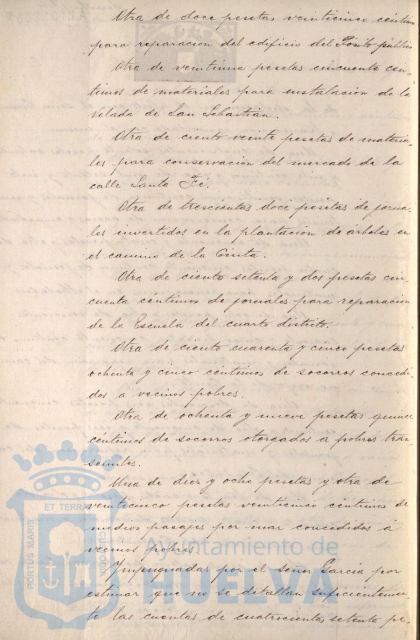 Otra de doce pesetas veinticinco céntimos
para reparacion del edificio del Posito público
Otra de veintiuna pesetas cincuenta cen-
timos de materiales para instalacion de la
Velada de San Sebastian.
Otra de ciento veinte pesetas de materia-
les para conservacion del mercado de la
calle Santa Fé.
Otra de trescientas doce pesetas de jorna-
les invertidos en la plantacion de árboles en
el camino de la Cinta.
Otra de ciento setenta y dos pesetas cin-
cuenta céntimos de jornales para reparacion
de la Escuela del cuarto distrito.
Otra de ciento cuarenta y cinco pesetas
ochenta y cinco céntimos de socorros concedi-
dos a vecinos pobres.
Otra de ochenta y nueve pesetas quince
céntimos de socorros otorgados a pobres tran-
seuntes.
Una de diez y ocho pesetas y otra de
veinticinco pesetas veinticinco céntimos de
medios pasajes por mar concedidos á
vecinos pobres.
Impugnadas por el señor Garcia por
estimar que no se detallan suficientemen-
te las cuentas de cuatrocientas setenta pe-
ET TERRAE
PORTUS MARIS
CUSTODIA
Ayuntamiento de
HUELVA